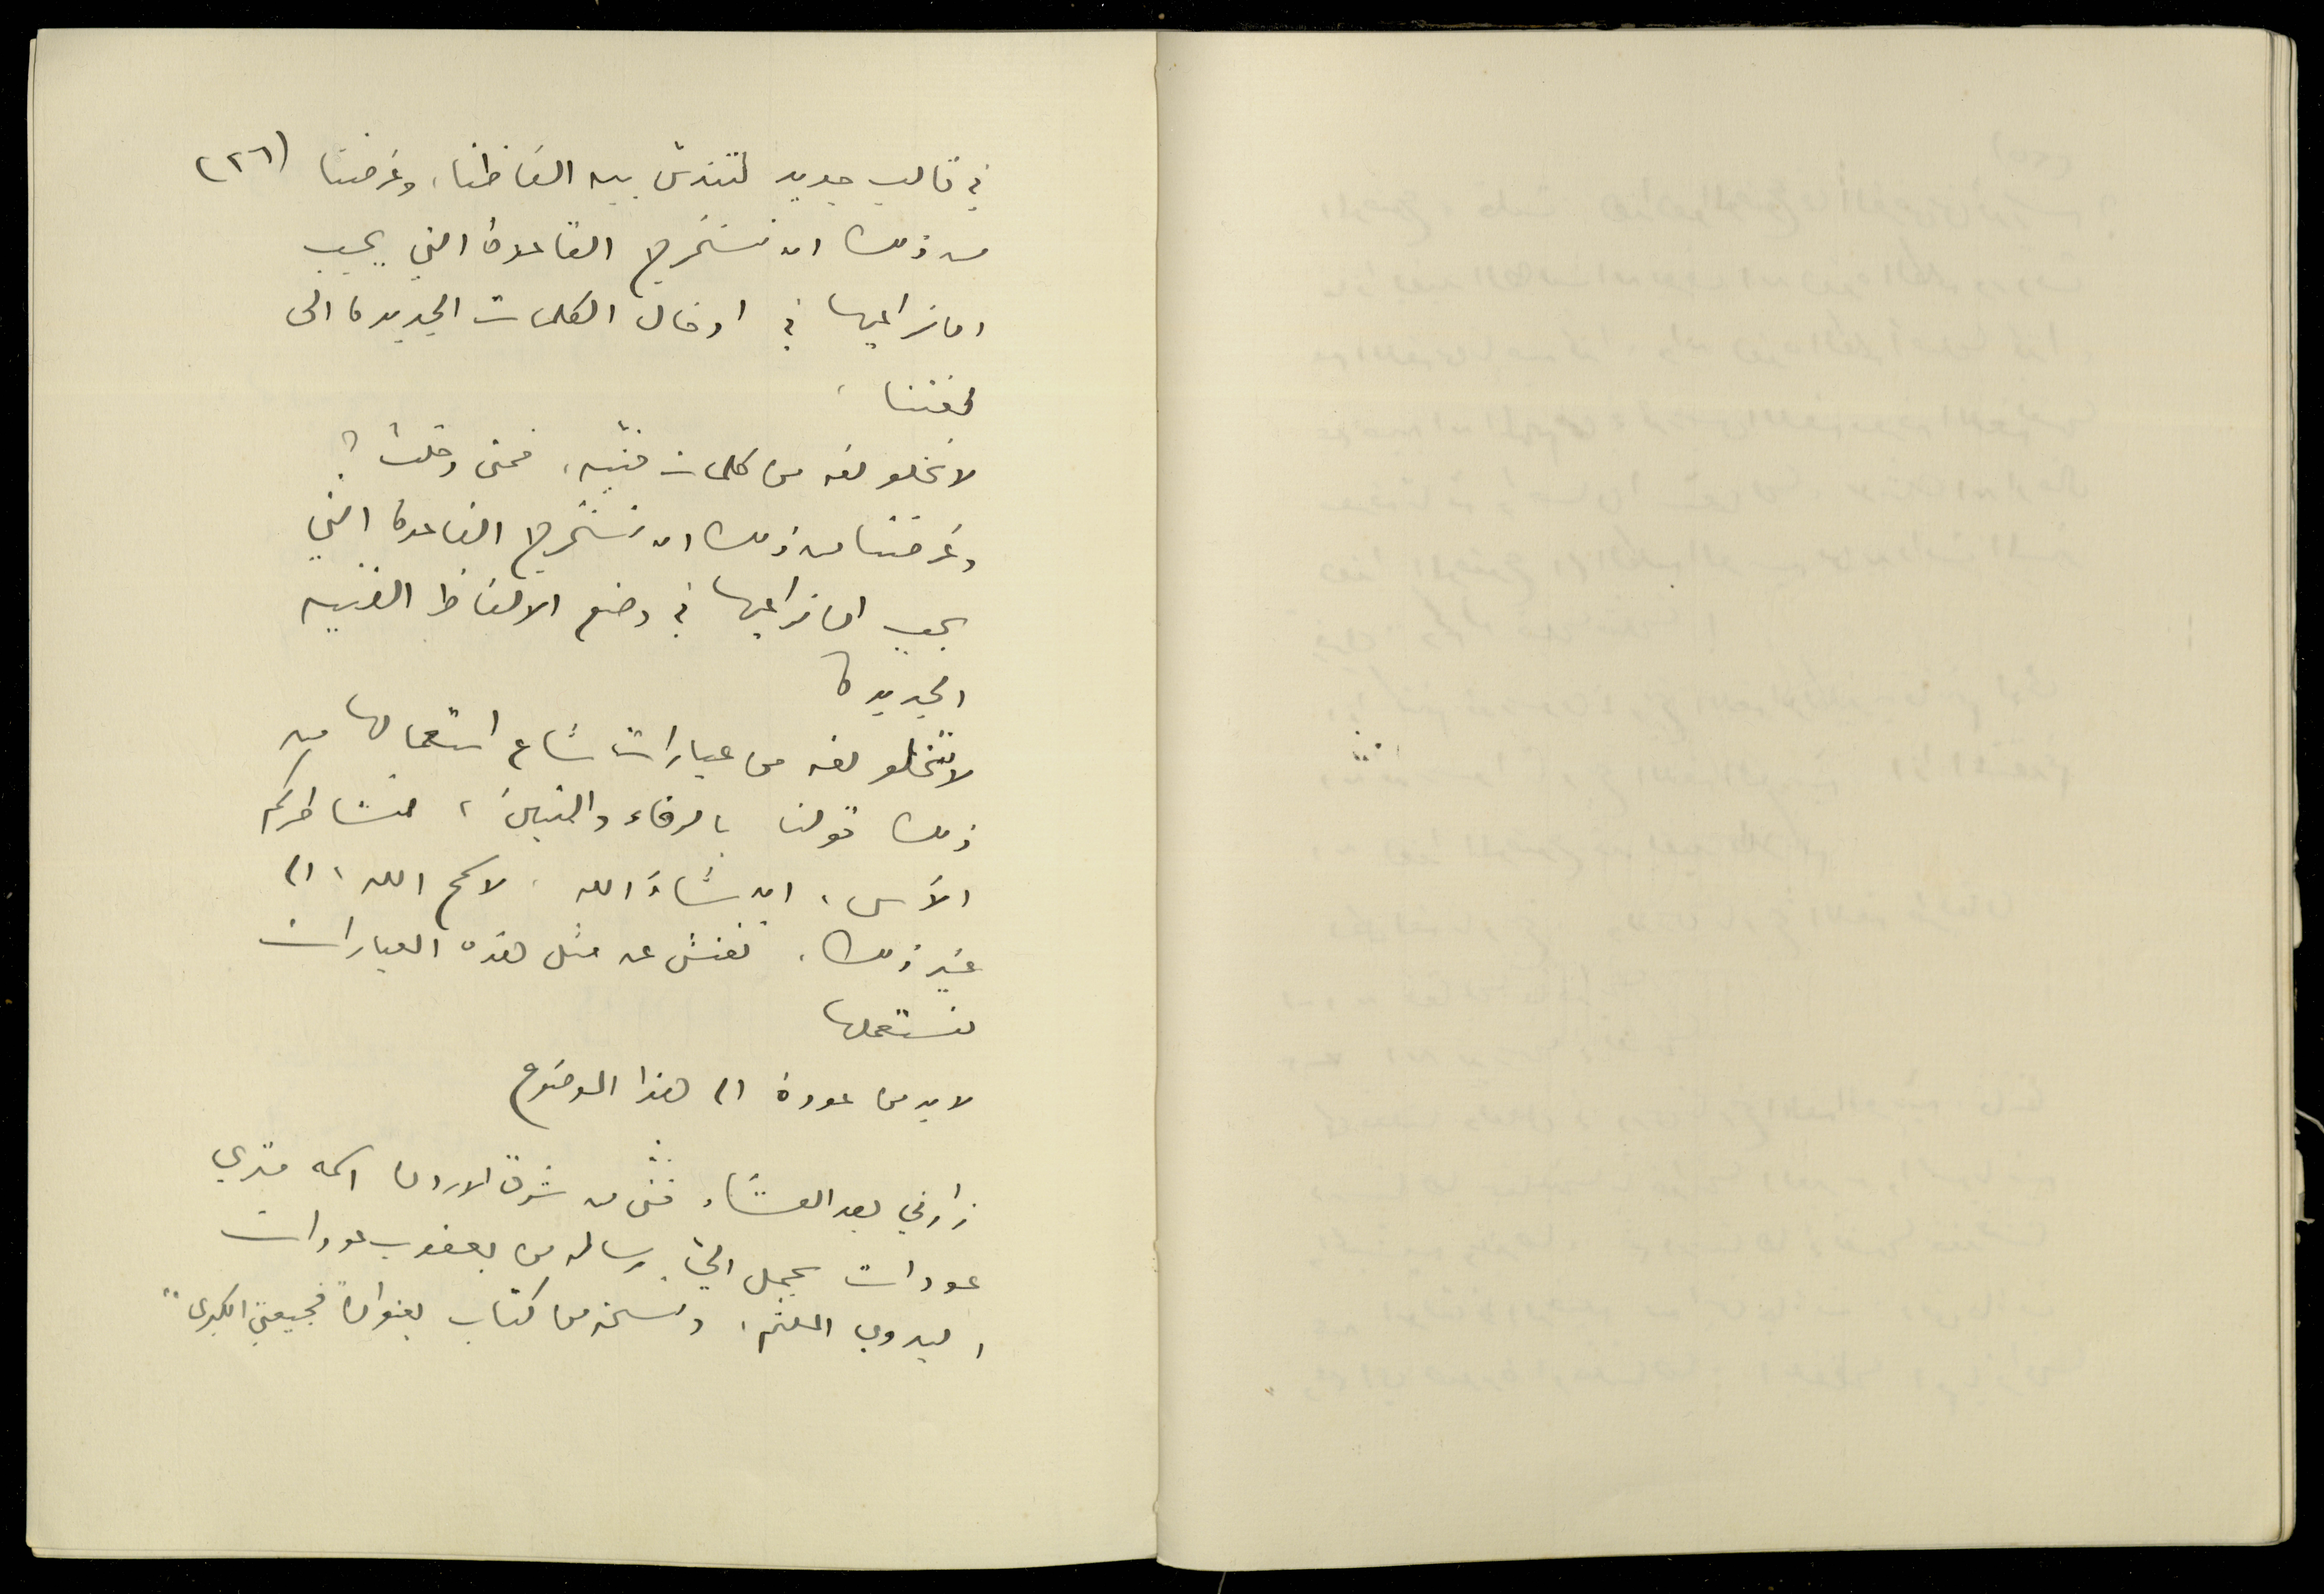 (٢٦)
في قالب جديد لتندس بين الفاظنا، وغرضنا
من ذلك ان نستخرج القاعدة التي يجب
ان نراعيها في ادخال الكلمات الجديدة الى
لغتنا.
لا تخلو لغه من كلمات فنيه، فمتى دخلت؟
وغرضنا من ذلك ان نستخرج القاعدة التي
يجب ان نراعيها في وضع الالفاظ الفنيه
الجديدة
لا تخلو لغه من عبارات شاع استعمالها من
ذلك قولنا بالرفاء والبنين، نشاطركم
الأسى، ان شاء الله، لا سمح الله، الى
غير ذلك. نفتش عن مثل هذه العبارات
لنستعملها
لا بد من عودة الى هذا الموضوع
زارني بعد العشاء فتى من شرق الاردن اسمه متري
عودات يحمل اليّ رسالة من يعقوب عودات
البدوي الملثم، ونسخة من كتاب بعنوان "فجيعتي الكبرى"